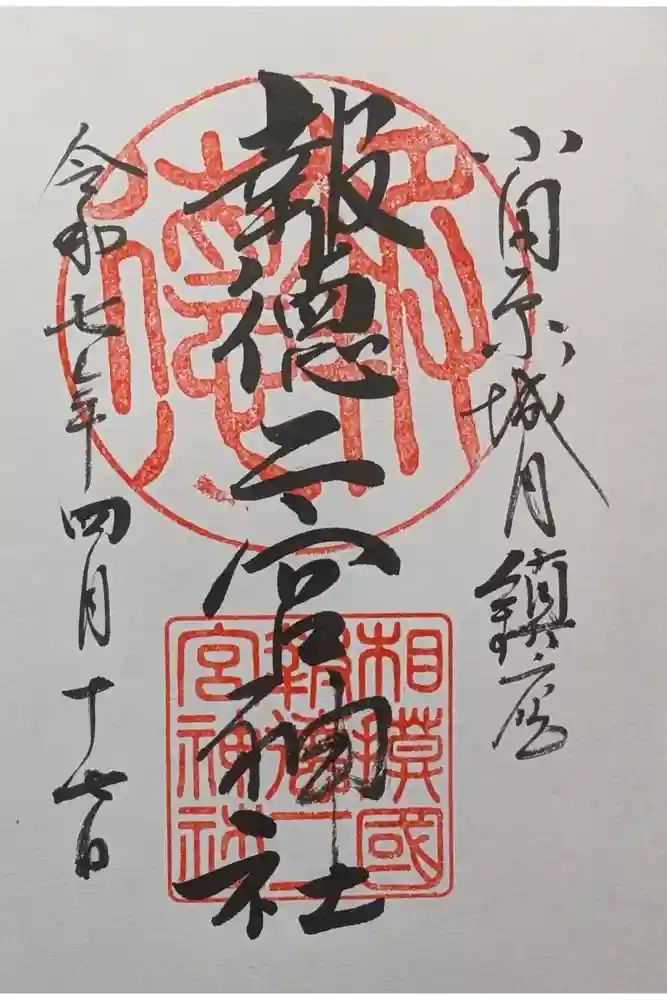 小田原城内鎮座
報徳二宮神社
令和七年四月十七日
相模國
報徳二
宮神社